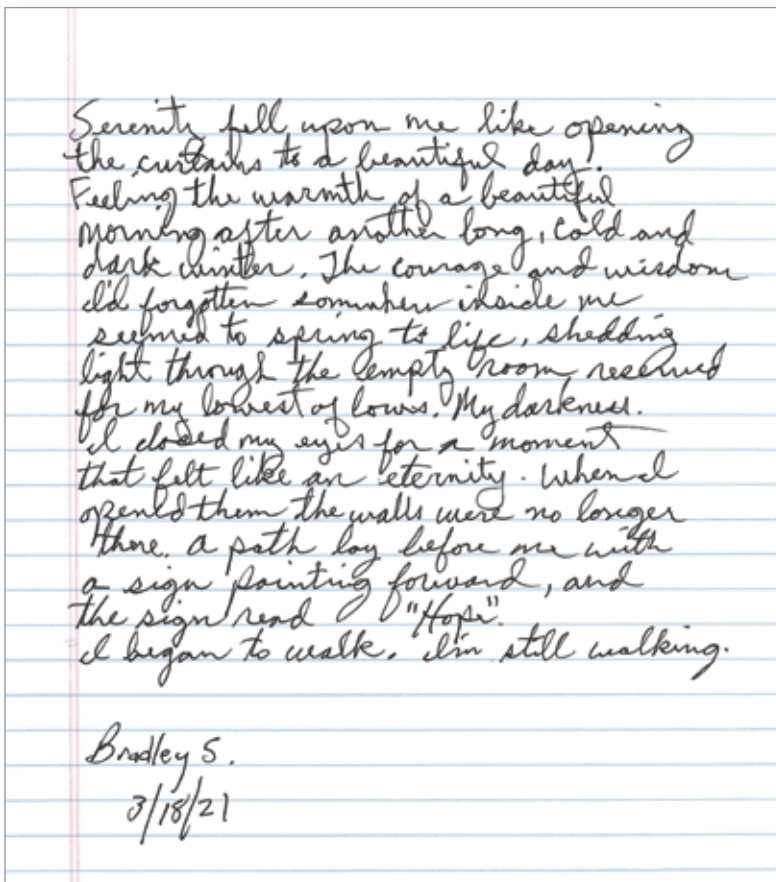 Serenity fell upon me like opening
the curtains to a beautiful day.
Feeling the warmth of a beautiful
morning after another long, cold and
dark winter. The courage and wisdom
I'd forgotten somewhere inside me
seemed to spring to life, shedding
light through the empty room reserved
for my lowest of lows. My darkness.
I closed my eyes for a moment
that felt like an eternity. When I
opened them the walls were no longer
there. A path lay before me with
a sign pointing forward, and
the sign read "Hope".
I began to walk. I'm still walking.
Bradley S.
3/18/21